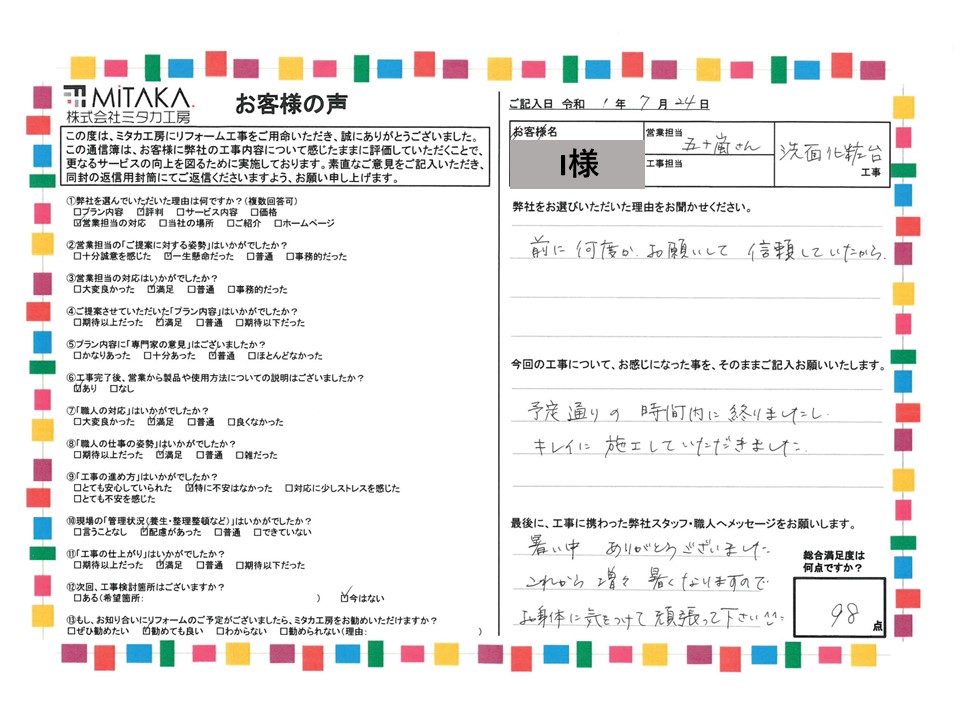 MiTAKA.
株式会社ミタカ工房
お客様の声
この度は、ミタカ工房にリフォーム工事をご用命いただき、誠にありがとうございました。
この通信簿は、お客様に弊社の工事内容について感じたままに評価していただくことで、
更なるサービスの向上を図るために実施しております。素直なご意見をご記入いただき、
同封の返信用封筒にてご返信くださいますよう、お願い申し上げます。
①弊社を選んでいただいた理由は何ですか?(複数回答可)
□プラン内容 ☑評判 □サービス内容 □価格
☑営業担当の対応 □当社の場所 □ご紹介 □ホームページ
②営業担当の「ご提案に対する姿勢」はいかがでしたか?
□十分誠意を感じた ☑一生懸命だった □普通 □事務的だった
③営業担当の対応はいかがでしたか?
□大変良かった ☑満足 □普通 □事務的だった
④ご提案させていただいた「プラン内容」はいかがでしたか?
□期待以上だった ☑満足 □普通 □期待以下だった
⑤プラン内容に「専門家の意見」はございましたか?
□かなりあった □十分あった ☑普通 □ほとんどなかった
⑥工事完了後、営業から製品や使用方法についての説明はございましたか?
☑あり □なし
⑦「職人の対応」はいかがでしたか?
□大変良かった ☑満足 □普通 □良くなかった
⑧「職人の仕事の姿勢」はいかがでしたか?
□期待以上だった ☑満足 □普通 □雑だった
⑨「工事の進め方」はいかがでしたか?
□とても安心していられた ☑特に不安はなかった □対応に少しストレスを感じた
□とても不安を感じた
⑩現場の「管理状況(養生・整理整頓など)」はいかがでしたか?
□言うことなし ☑配慮があった □普通 □できていない
⑪「工事の仕上がり」はいかがでしたか?
□期待以上だった ☑満足 □普通 □期待以下だった
⑫次回、工事検討箇所はございますか?
□ある(希望箇所: ) ☑今はない
⑬もし、お知り合いにリフォームのご予定がございましたら、ミタカ工房をお勧めいただけますか?
□ぜひ勧めたい ☑勧めても良い □わからない □勧められない(理由: )
ご記入日 令和 1 年 7 月 24 日
お客様名
I様
営業担当
五十嵐さん
工事担当
洗面化粧台
工事
弊社をお選びいただいた理由をお聞かせください。
前に何度か、お願いして 信頼していたから。
今回の工事について、お感じになった事を、そのままご記入お願いいたします。
予定通りの 時間内に 終りましたし、
キレイに 施工していただきました。
最後に、工事に携わった弊社スタッフ・職人へメッセージをお願いします。
暑い中 ありがとうございました
これから 増々 暑くなりますので
お身体に気をつけて 頑張って下さい^^
総合満足度は
何点ですか?
98
点